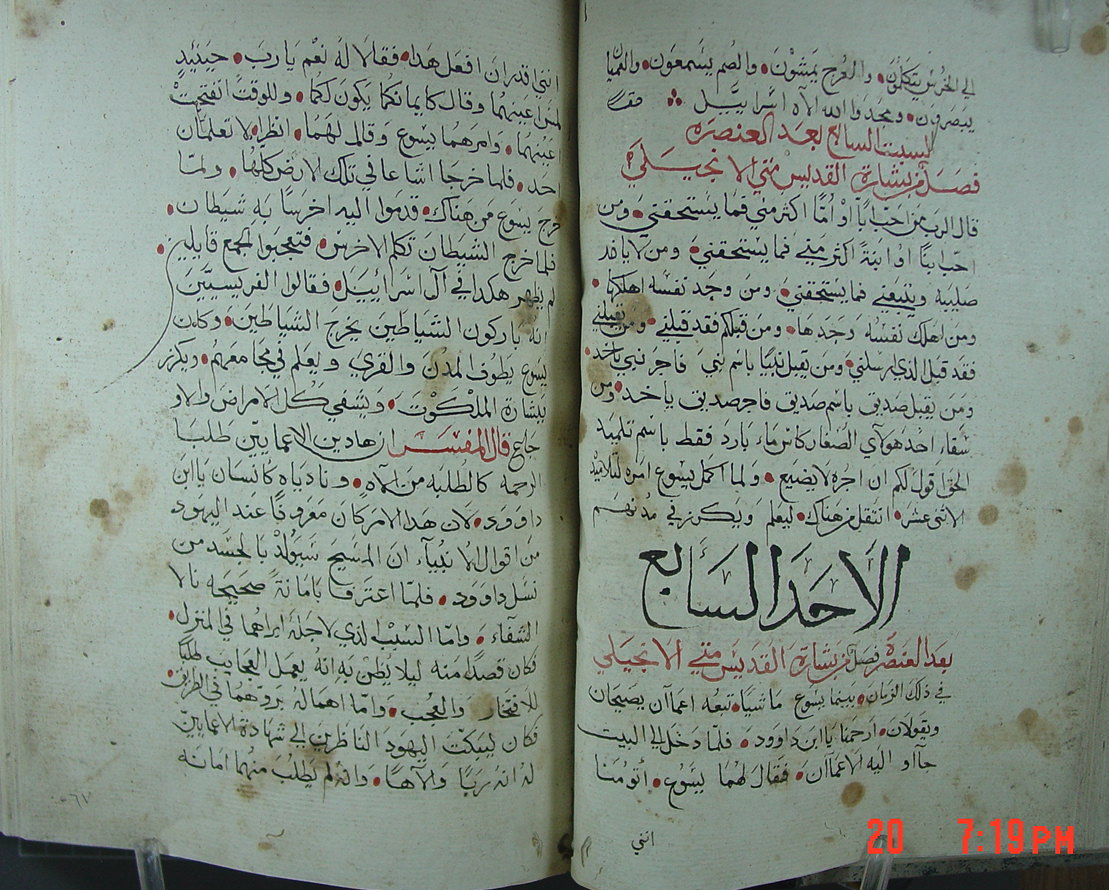 الى الخرس يتكلمون، والعرج يمشون، والصم يسمعون، والعميان
يبصرون، ومجدوا الله الاه اسراييل
لسبت السابع بعد العنصره
فصل من بشارة القديس متي الانجيلي
قال الرب من احب ابًا او اُمًّا اكثر مني فما يستحقني، ومن
احب ابنًا او ابنةً اكثر مني فما يستحقني، ومن لا ياخد
صليبه ويتبعني فما يستحقني، ومن وجد نفسه اهلكها،
ومن اهلك نفسه وجدها، ومن قبلكم فقد قبلني، ومن قبلني
فقد قبل الذي ارسلني، ومن يقبل نبيًا باسم نبي فاجر نبي ياخد،
ومن يقبل صديق باسم صديق فاجر صديق ياخد، ومن
سقاء احد هولاي الصغار كاس ماء بارد فقط باسم تلميد
الحق اقول لكم ان اجره لا يضيع، ولما اكمل يسوع امره لتلاميده
الاثنى عشر، انتقل من هناك، ليعلم ويكرز في مدنهم
الاحد السابع
بعد العنصره فصل من بشارة القديس متي الانجيلي
في ذلك الزمان، بينما يسوع ماشيًا، تبعه اعماآن يصيحان
ويقولان، ارحمنا يا ابن داوود، فلما دخل الى البيت
جآاو اليه الاعماآن، فقال لهما يسوع، اتومنا
انني
انني اقدر ان افعل هدا، فقالا له نعم يارب، حينيدٍ
لمس اعينهما وقال كايمانكما يكون لكما، وللوقت انفتحت
اعينهما، وامرهما يسوع وقال لهما، انظرا لا تعلمان
احد، فلما خرجا اشاعا في تلك الارض كلها، ولما
خرج يسوع من هناك، قدموا اليه اخرسًا به شيطان،
فلما خرج الشيطان تكلم الاخرس، فتعجبوا الجمع قايلين،
لم يظهر هكدا في آل اسراييل، فقالوا الفريسيين
انه باركون الشياطين يخرج الشياطين، وكان
يسوع يطوف المدن والقري ويعلم في مجامعهم، ويكرز
ببشارة الملكوت، ويشفي كل الامراض والاو
جاع قال المفسر ان هادين الاعمايين طلبا
الرحمه كالطلبه من الآه، ونادياه كانسان ياابن
داوود، لان هدا الامر كان معروفًا عند اليهود
من اقوال الانبيآء ان المسيح سيولد بالجسد من
نسل داوود، فلما اعترفا بامانةً صحيحه نالا
الشفآء، واما السبب الذي لاجله ابراهما في المنزل،
فكان قصدًا منه ليلا يظن به انه يعمل العجايب طلبًا
للافتخار والعجب، واما اهماله برؤهما في الطريق
فكان ليبكت اليهود الناظرين الى شهادة الاعمايين
له انه ربًا والاهًا، وانه لم يطلب منهما امانه
20 7:19PM